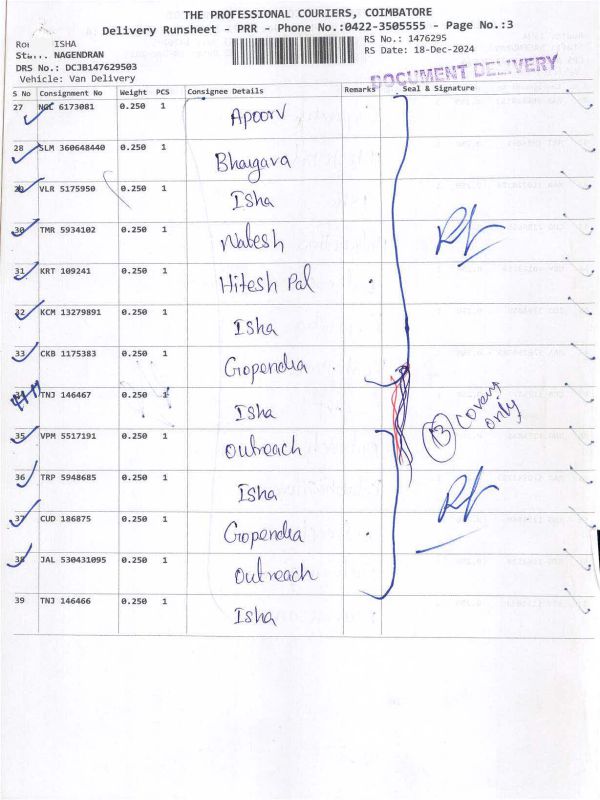 THE PROFESSIONAL COURIERS, COIMBATORE
Delivery Runsheet - PRR - Phone No.:0422-3505555 - Page No.:3
ISHA
RS No.: 1476295
NAGENDRAN
RS Date: 18-Dec-2024
DRS No.: DCJB147629503
Vehicle: Van Delivery
DOCUMENT DELIVERY
S No Consignment No Weight PCS Consignee Details Remarks Seal & Signature
27 NGC 6173081 0.250 1 Apoorv
28 SLM 360648440 0.250 1 Bhargava
29 VLR 5175950 0.250 1 Isha
30 TMR 5934102 0.250 1 Natesh
31 KRT 109241 0.250 1 Hitesh Pal
32 KCM 13279891 0.250 1 Isha
33 CKB 1175383 0.250 1 Gopendra
34 TNJ 146467 0.250 1 Isha
13 covers only
35 VPM 5517191 0.250 1 Outreach
36 TRP 5948685 0.250 1 Isha
37 CUD 186875 0.250 1 Gopendra
38 JAL 530431095 0.250 1 Outreach
39 TNJ 146466 0.250 1 Isha